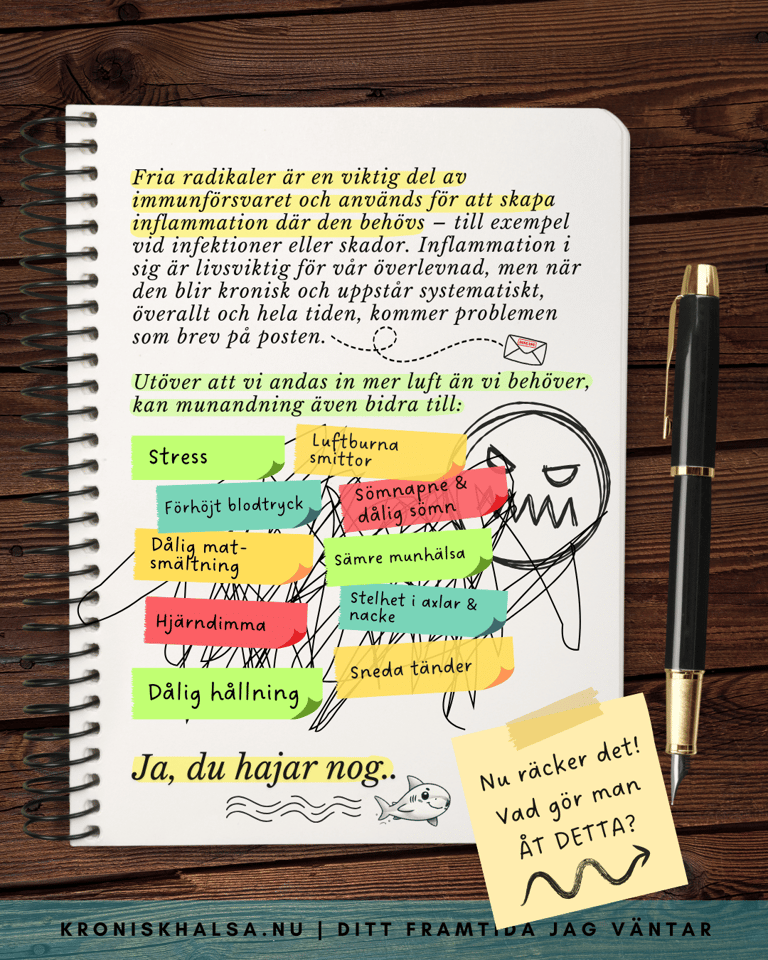 Fria radikaler är en viktig del av
immunförsvaret och används för att skapa
inflammation där den behövs – till exempel
vid infektioner eller skador. Inflammation i
sig är livsviktig för vår överlevnad, men när
den blir kronisk och uppstår systematiskt,
överallt och hela tiden, kommer problemen
som brev på posten.
Utöver att vi andas in mer luft än vi behöver,
kan munandning även bidra till:
Stress
Luftburna
smittor
Förhöjt blodtryck
Sömnapne &
dålig sömn
Dålig mat-
smältning
Sämre munhälsa
Hjärndimma
Stelhet i axlar &
nacke
Dålig hållning
Sneda tänder
Ja, du hajar nog..
Nu räcker det!
Vad gör man
ÅT DETTA?
KRONISKHALSA.NU | DITT FRAMTIDA JAG VÄNTAR